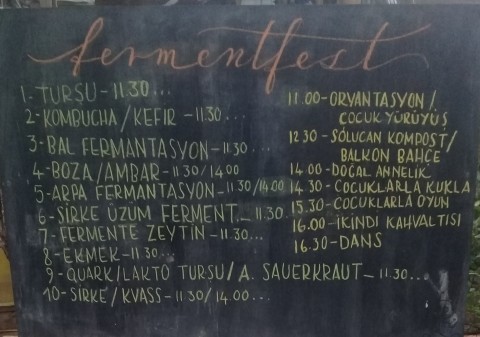 fermentfest
1- TURŞU - 11.30...
2- KOMBUCHA / KEFIR - 11.30...
3- BAL FERMANTASYON - 11.30...
4- BOZA / AMBAR - 11.30/14.00
5- ARPA FERMANTASYON - 11.30/14.00
6- SİRKE ÜZÜM FERMENT. - 11.30...
7- FERMENTE ZEYTİN - 11.30...
8- EKMEK - 11.30...
9- QUARK/LAKTO TURŞU/A. SAUERKRAUT - 11.30...
10- SİRKE / KVASS - 11.30/14.00...
11.00 - ORYANTASYON /
ÇOCUK YÜRÜYÜŞ
12.30 - SOLUCAN KOMPOST /
BALKON BAHÇE
14.00 - DOĞAL ANNELİK
14.30 - ÇOCUKLARLA KUKLA
15.30 - ÇOCUKLARLA OYUN
16.00 - İKİNDİ KAHVALTISI
16.30 - DANS